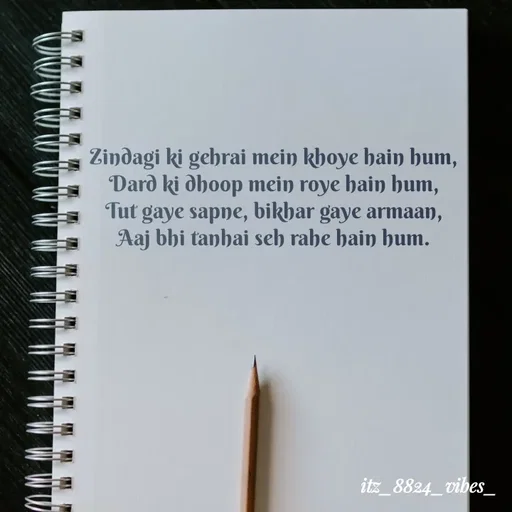 Zindagi ki gehrai mein khoye hain hum,
Dard ki dhoop mein roye hain hum,
Tut gaye sapne, bikhar gaye armaan,
Aaj bhi tanhai seh rahe hain hum.
itz_8824_vibes_